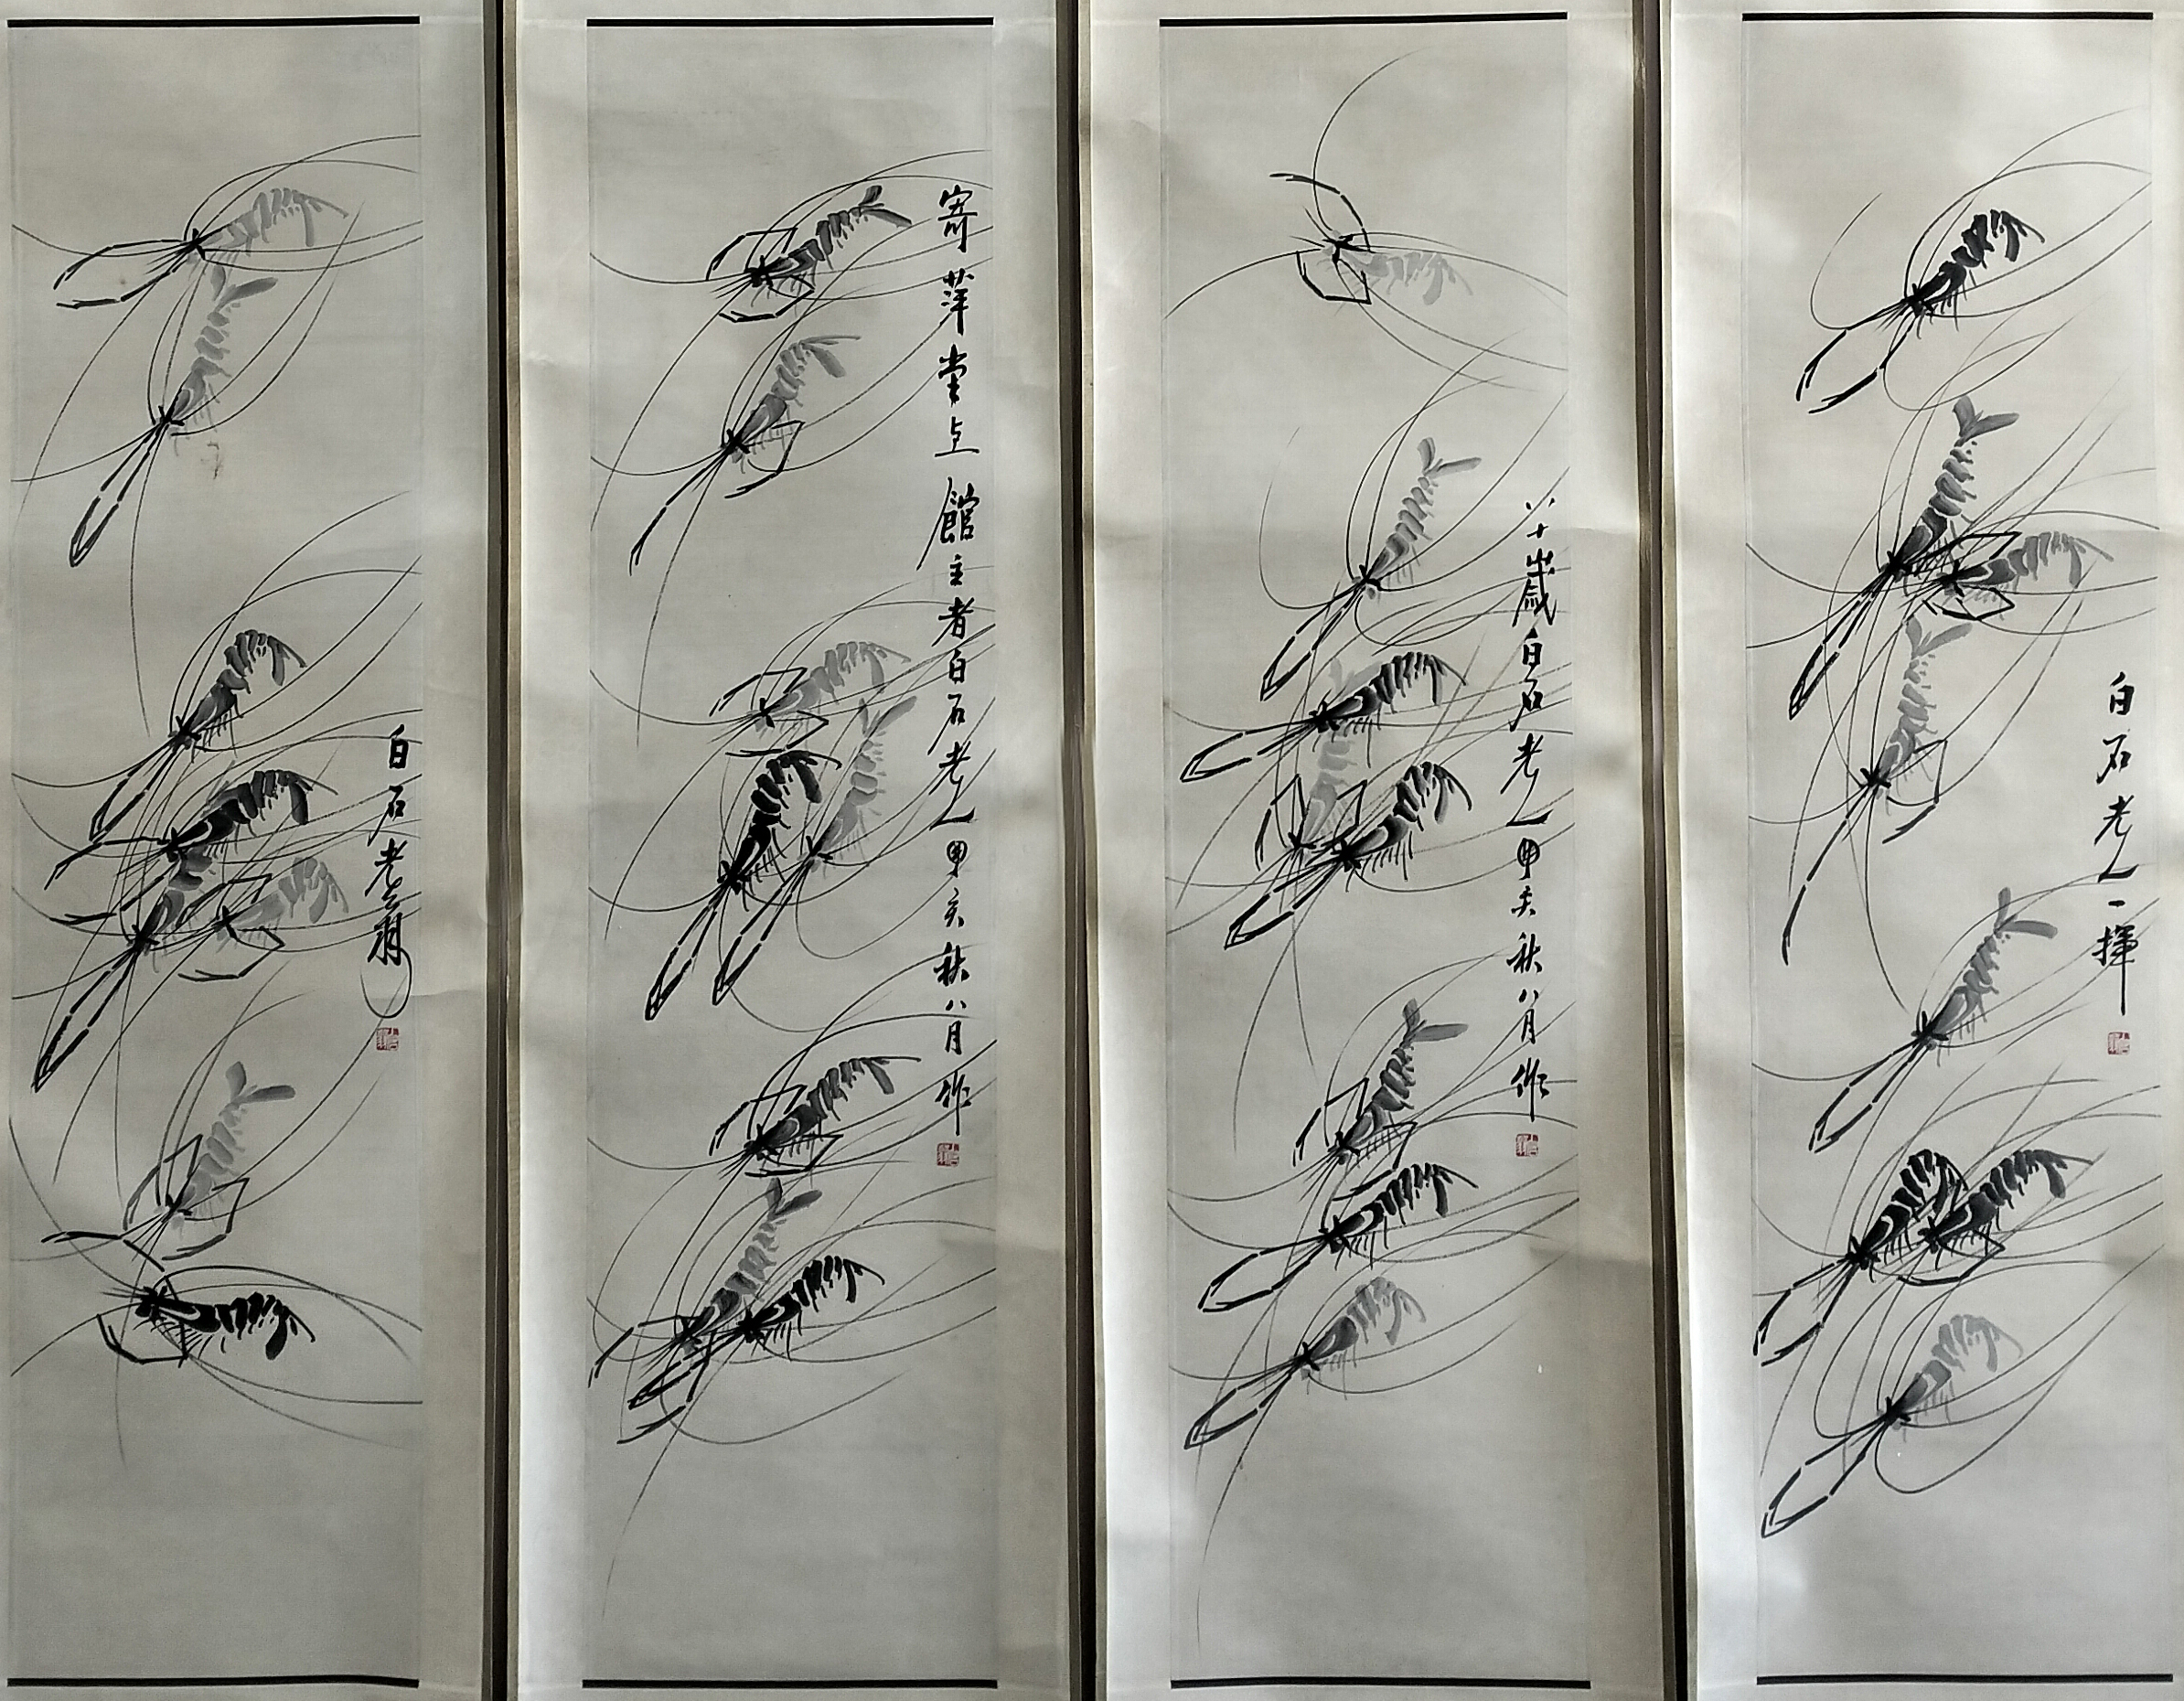 白石老人一揮
八十歲白石老人甲亥秋八月作
寄萍堂上館主者白石老人甲亥秋八月作
白石老翁